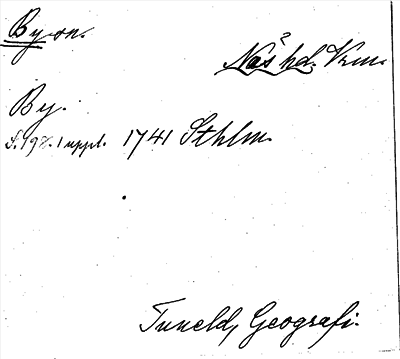 Byn.
Näs hd. Vrm.
By.
S. 198. 1 uppl. 1741 Sthlm.
Tuneld, Geografi.